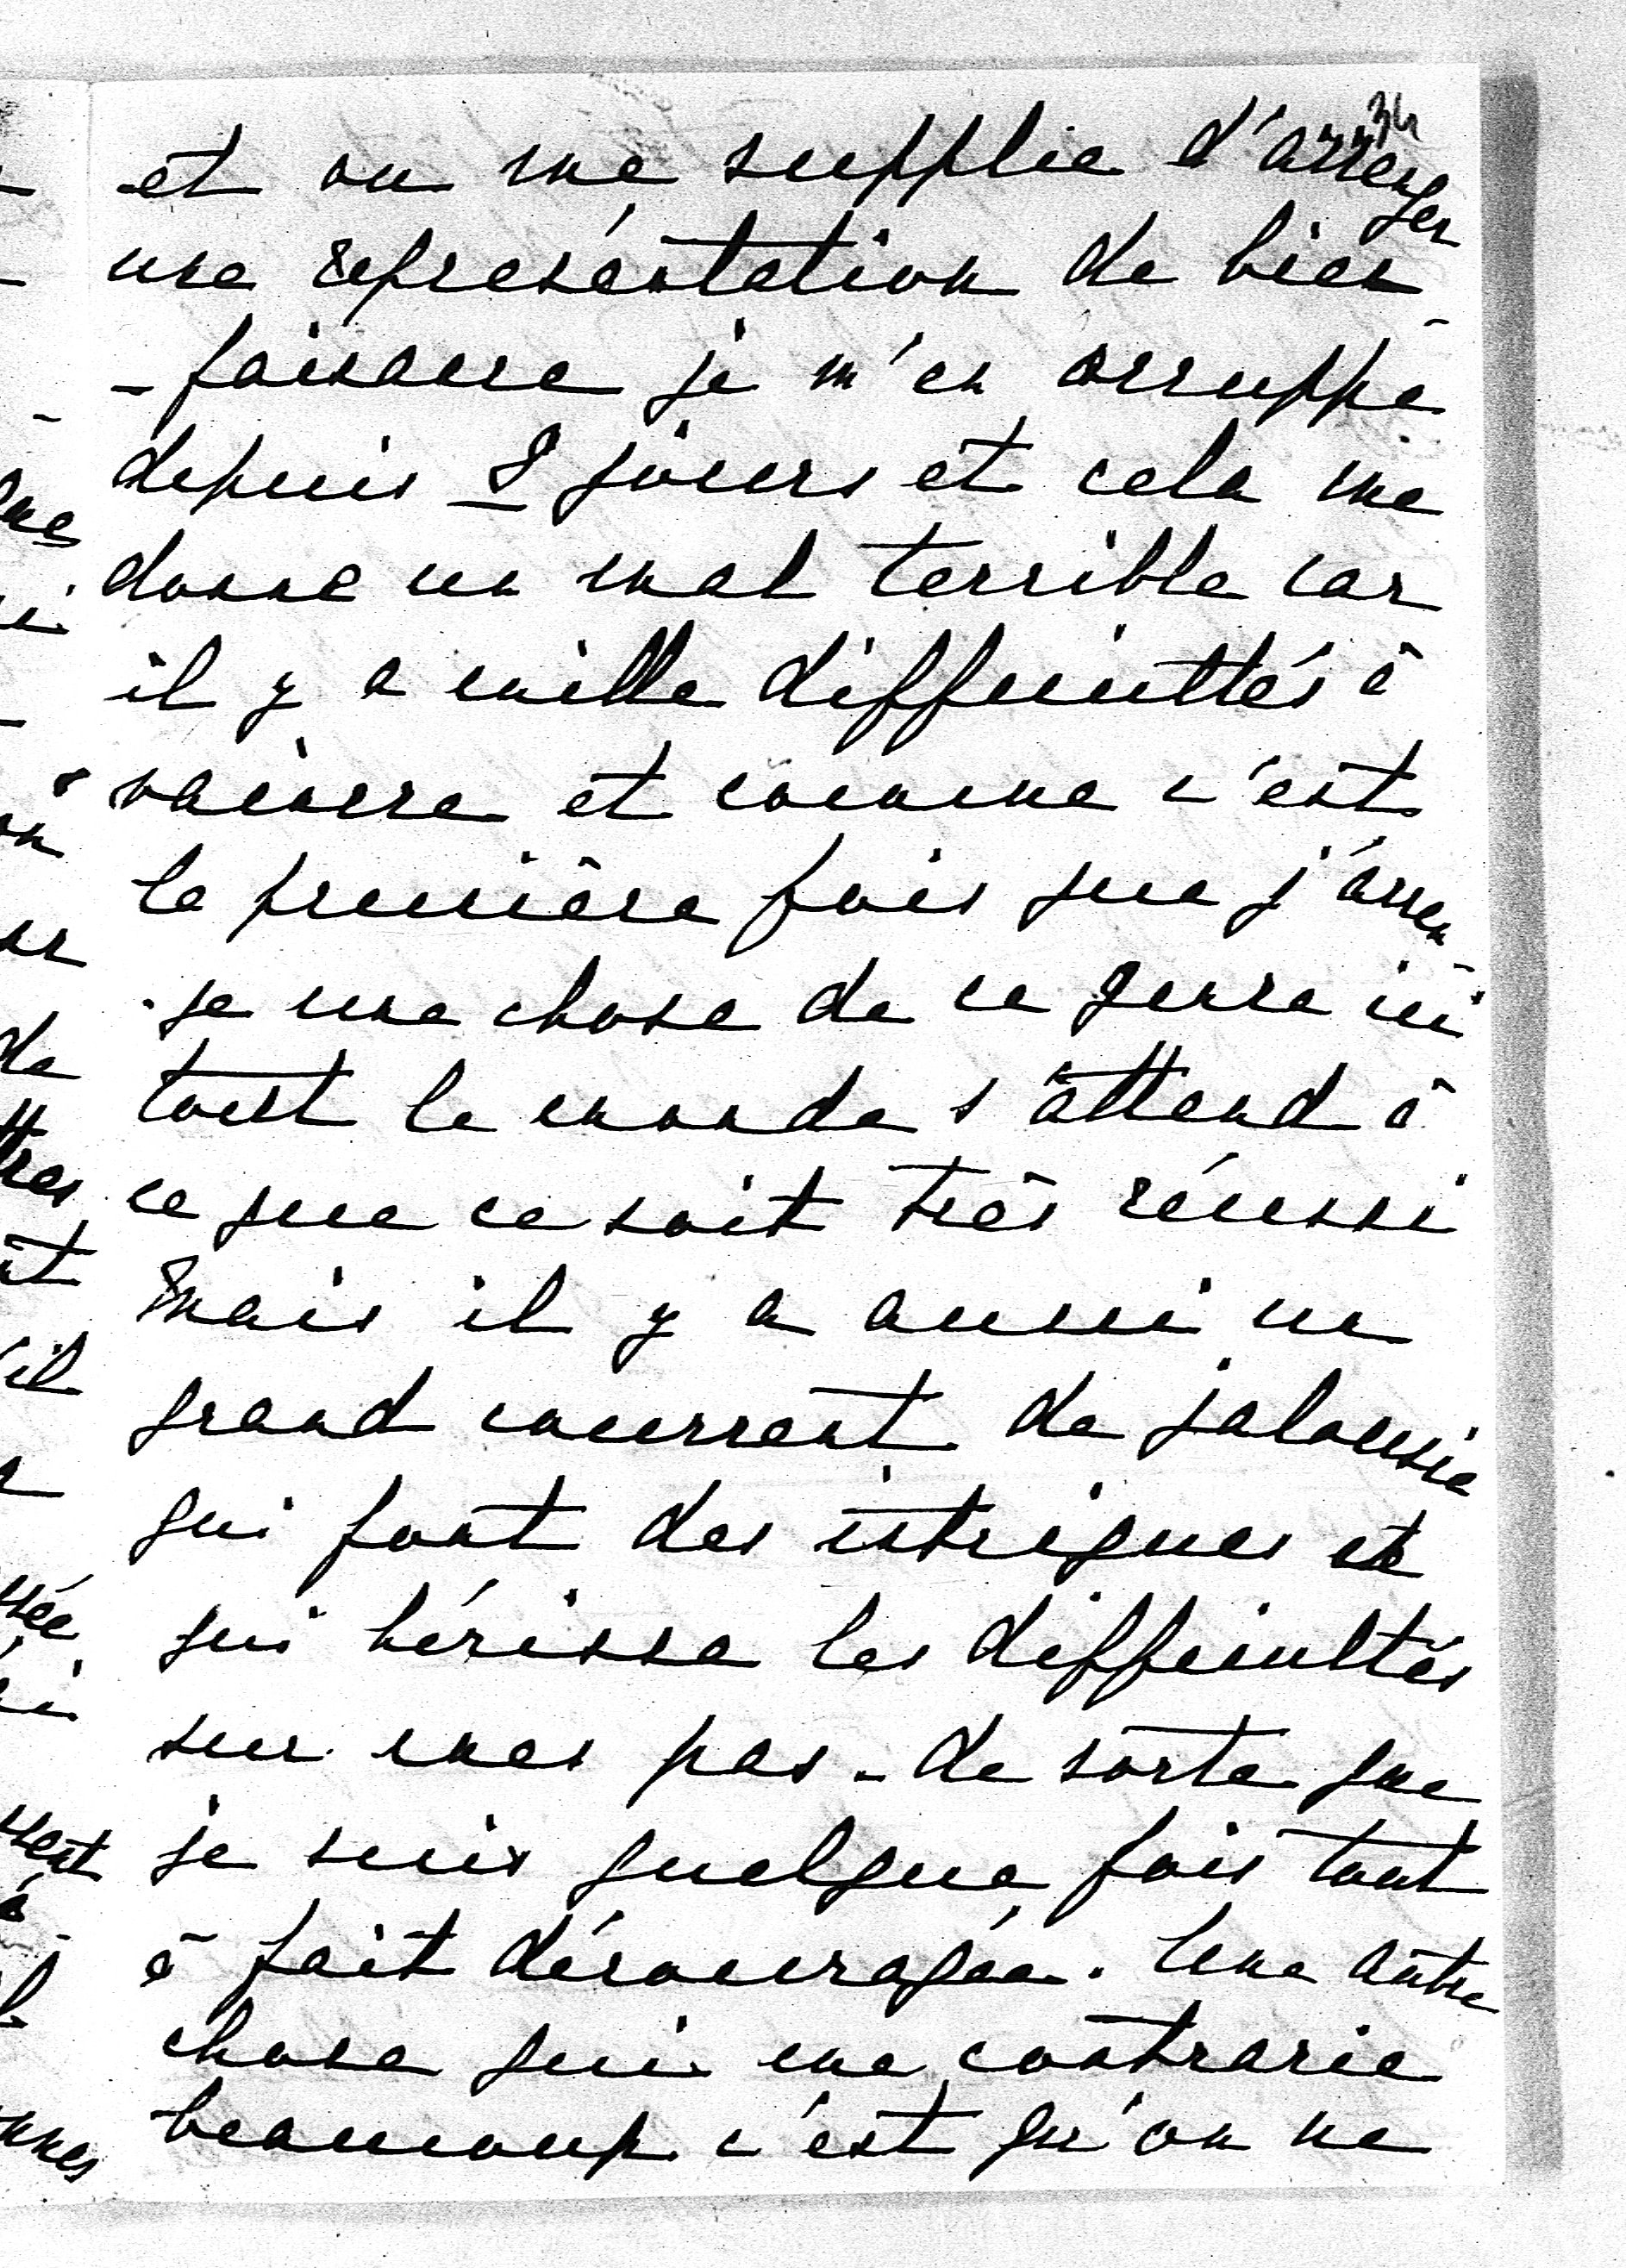 34
et on me supplie d'arranger
une représentation de bien-
-faisance je m'en occuppe
depuis 8 jours et cela me
donne un mal terrible car
il y a mille difficultés à
vaincre et comme c'est
la première fois que j'arran-
-ge une chose de ce genre ici
tout le monde s'attend à
ce que ce soit très réussi
Mais il y a aussi un
grand courrent de jalousie
qui font des intrigues et
qui hérisse les difficultés
sur mes pas - de sorte que
je suis quelque fois tout
à fait découragée. Une autre
chose qui me contrarie
beaucoup c'est qu'on ne